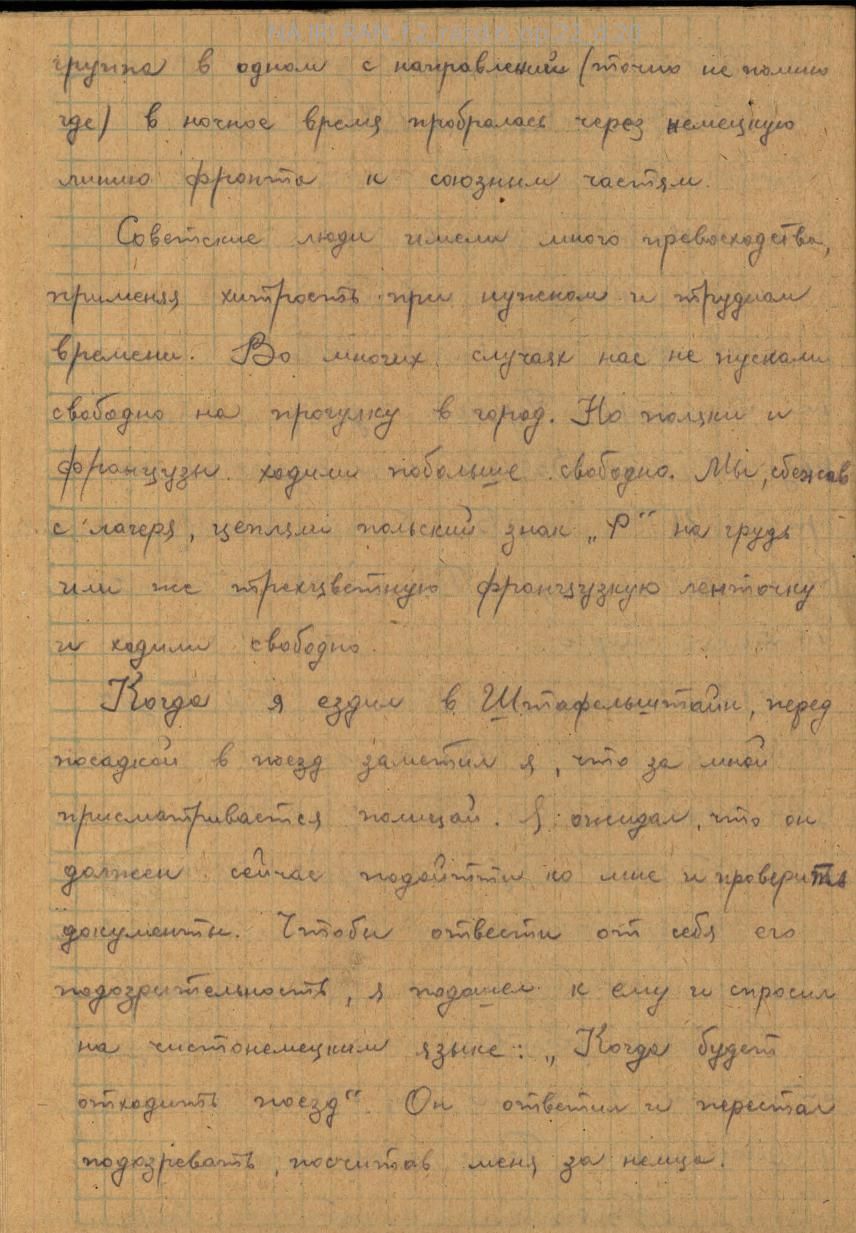 NA IRI RAN. f.2_razd.6_op.22_d.20
группа в одном с направлений (точно не помню
где) в ночное время пробралась через немецкую
линию фронта к союзным частям.
Советские люди имели много превосходства,
применяя хитрость при нужном и трудном
времени. Во многих случаях нас не пускали
свободно на прогулку в город. Но поляки и
французы ходили побольше свободно. Мы, сбежав
с лагеря, цепляли польский знак „Р“ на грудь
или же трехцветную французкую ленточку
и ходили свободно.
Когда я ездил в Штафельштайн, перед
посадкой в поезд заметил я, что за мной
присматривается полицай. Я ожидал, что он
должен сейчас подойтти ко мне и проверить
документы. Чтобы отвести от себя его
подозрительность, я подошел к ему и спросил
на чистонемецким языке: „Когда будет
отходить поезд“. Он ответил и перестал
подозревать, посчитав меня за немца.